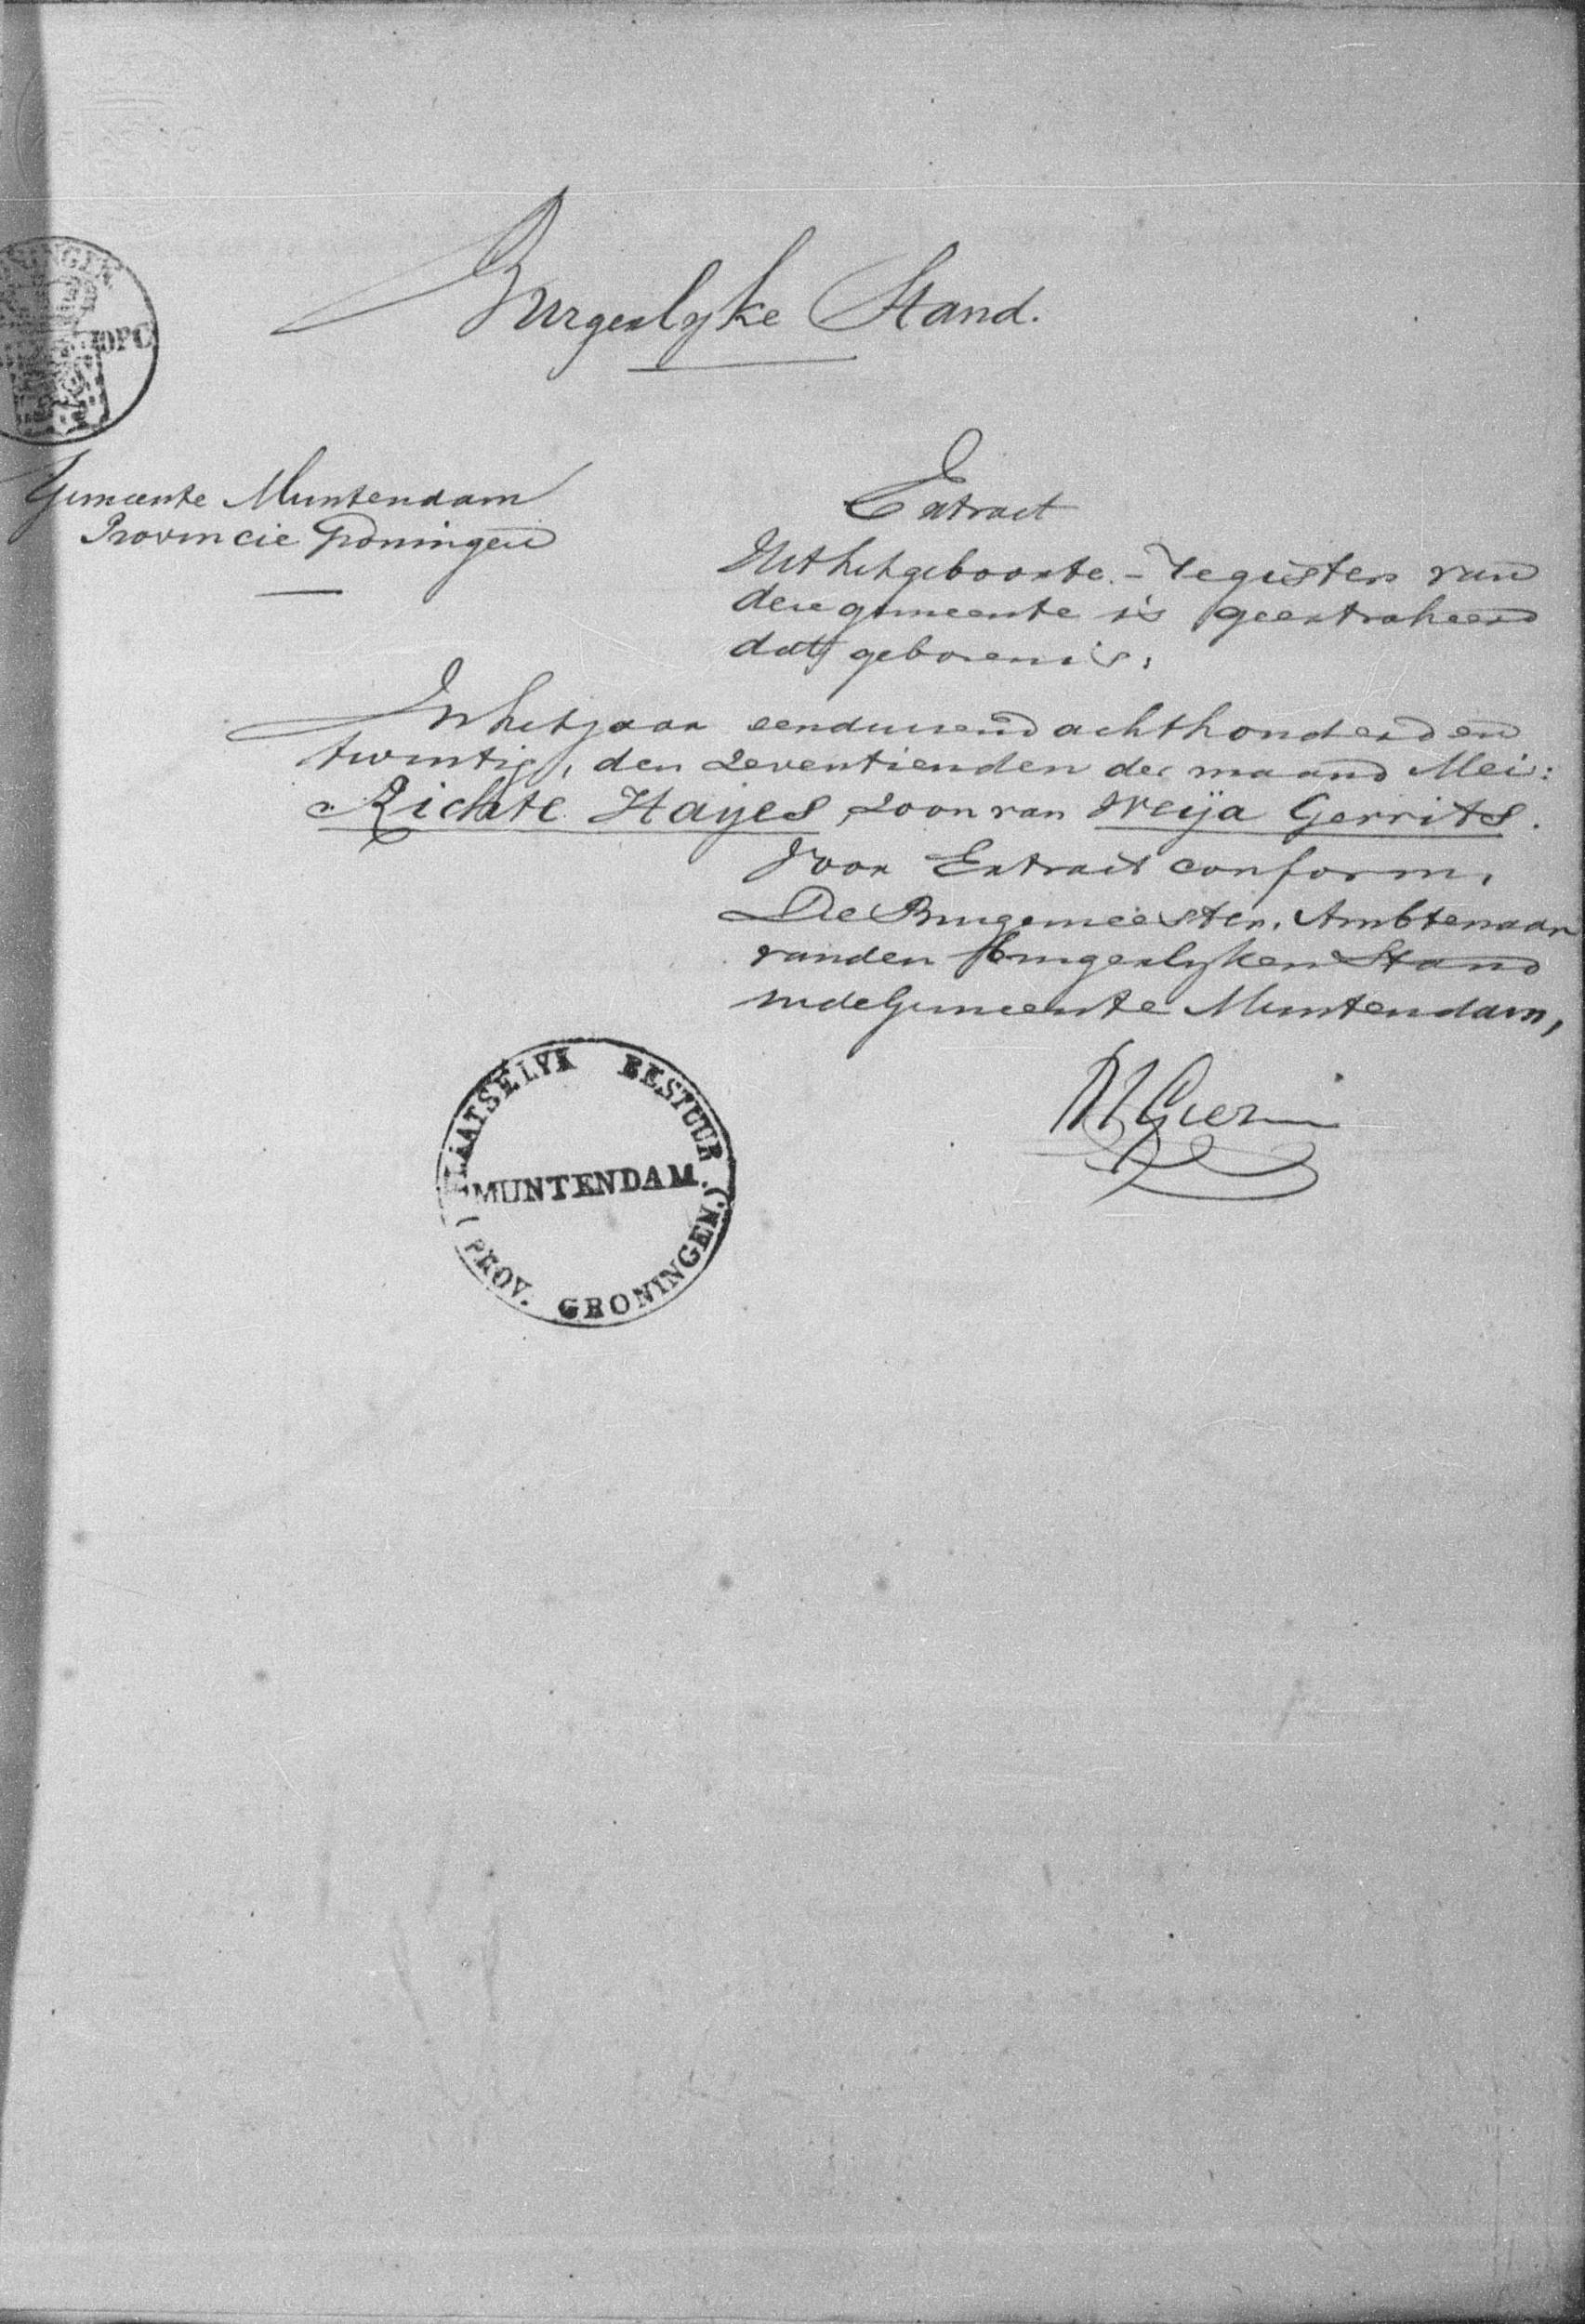 Burgerlyke Stand.
Gemeente Muntendam
Provincie Groningen
Extract
Uit het geboorte-register van
deze gemeente is geextraheerd
dat geboren is;
In het jaar eenduizend achthonderd en
twintig, den zeventienden der maand Mei:
Richte Hayes, zoon van Weija Gerrits.
Voor Extract conform,
De Burgemeester, Ambtenaar
van den burgerlyken Stand
in de Gemeente Muntendam,
PLAATSELYK BESTUUR
MUNTENDAM.
(PROV. GRONINGEN.)